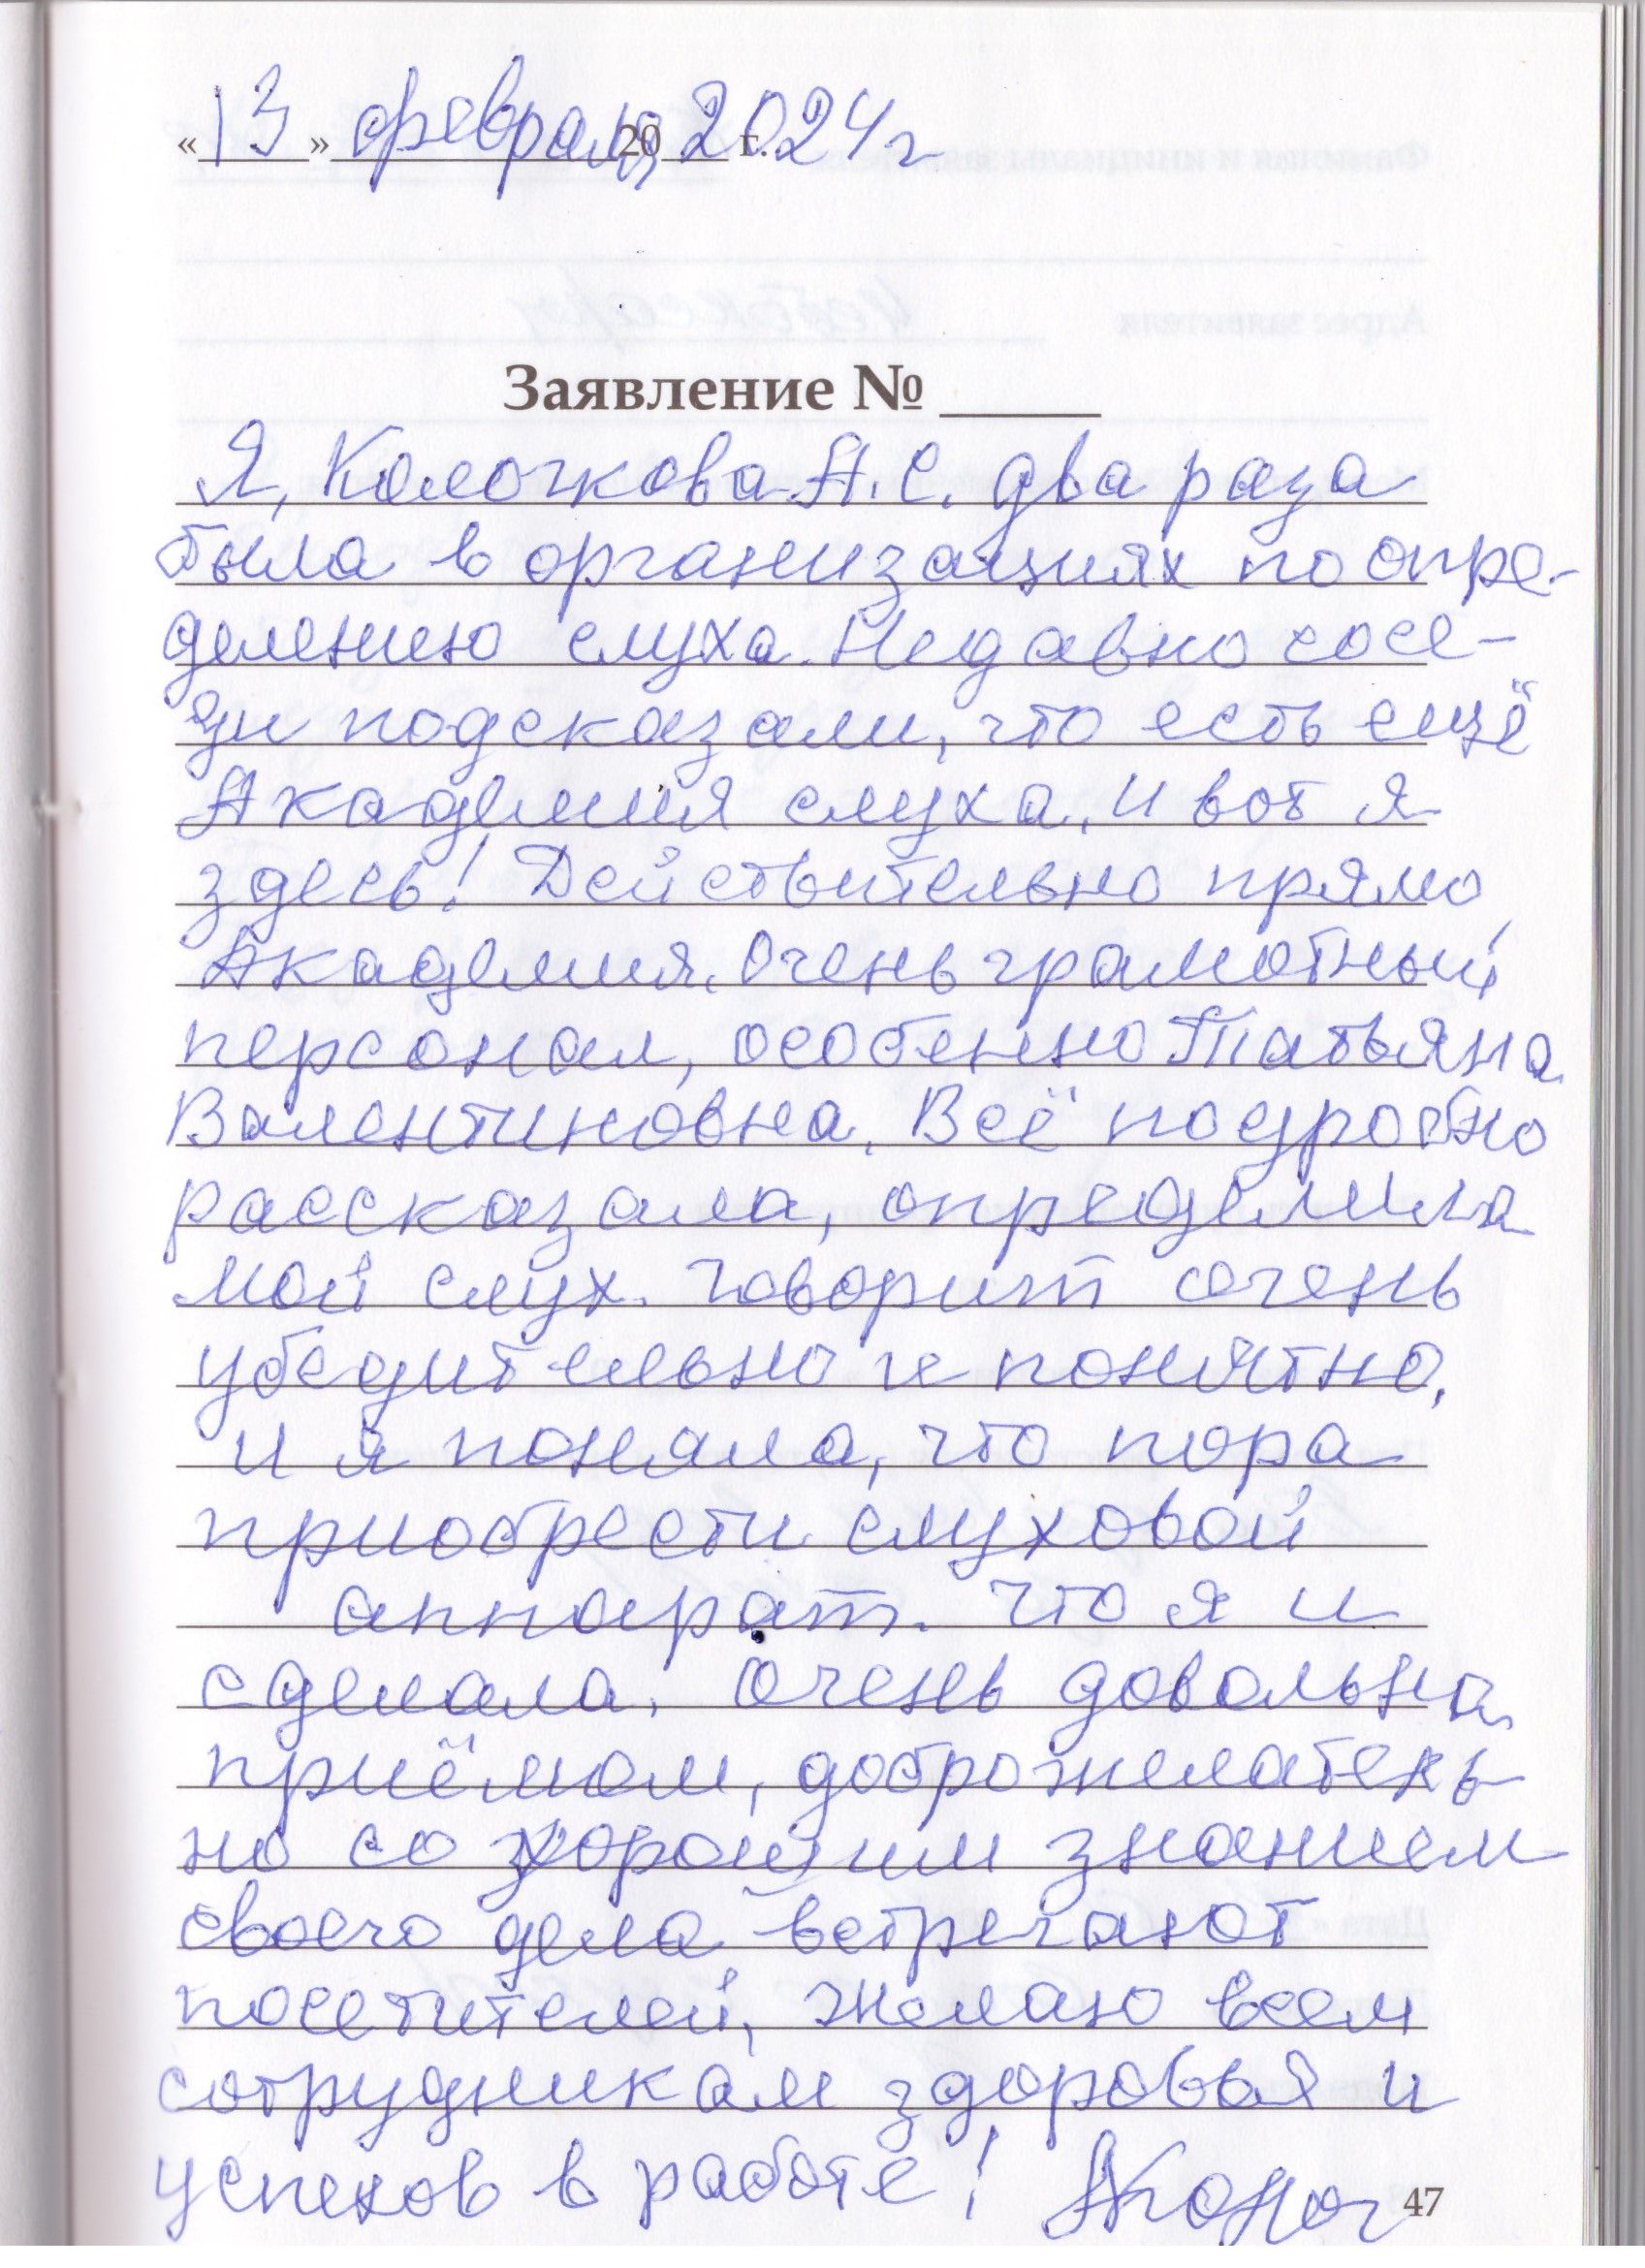 «13» февраля 20 2024 г.
Заявление №
Я, Колочкова А. С. два раза
была в организациях по опре-
делению слуха. Недавно сосе-
ди подсказали, что есть ещё
Академия слуха, и вот я
здесь! Действительно прямо
Академия. Очень грамотный
персонал, особенно Татьяна
Валентиновна. Всё подробно
рассказала, определила
мой слух. Говорит очень
убедительно и понятно,
и я поняла, что пора
приобрести слуховой
аппарат. Что я и
сделала. Очень довольна
приёмом, доброжелатель
но со хорошим знанием
своего дела встречают
посетителей, Желаю всем
сотрудникам здоровья и
успехов в работе!
47